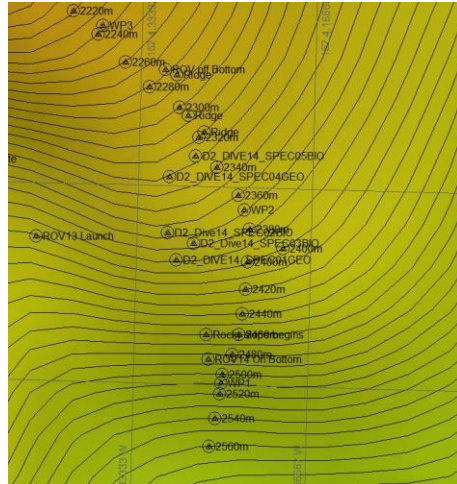 2220m
WP3
2240m
2260m
ROV off Bottom
Ridge
2280m
2300m
Ridge
Ridge
2320m
D2_DIVE14_SPEC05BIO
2340m
D2_DIVE14_SPEC04GEO
2360m
WP2
2380m
ROV13 Launch
D2_Dive14_SPEC02BIO
D2_Dive14_SPEC03BIO
2400m
2400m
D2_DIVE14_SPEC01GEO
2420m
2440m
2460m
begins
2480m
ROV14 On Bottom
2500m
WP1
2520m
2540m
2500m